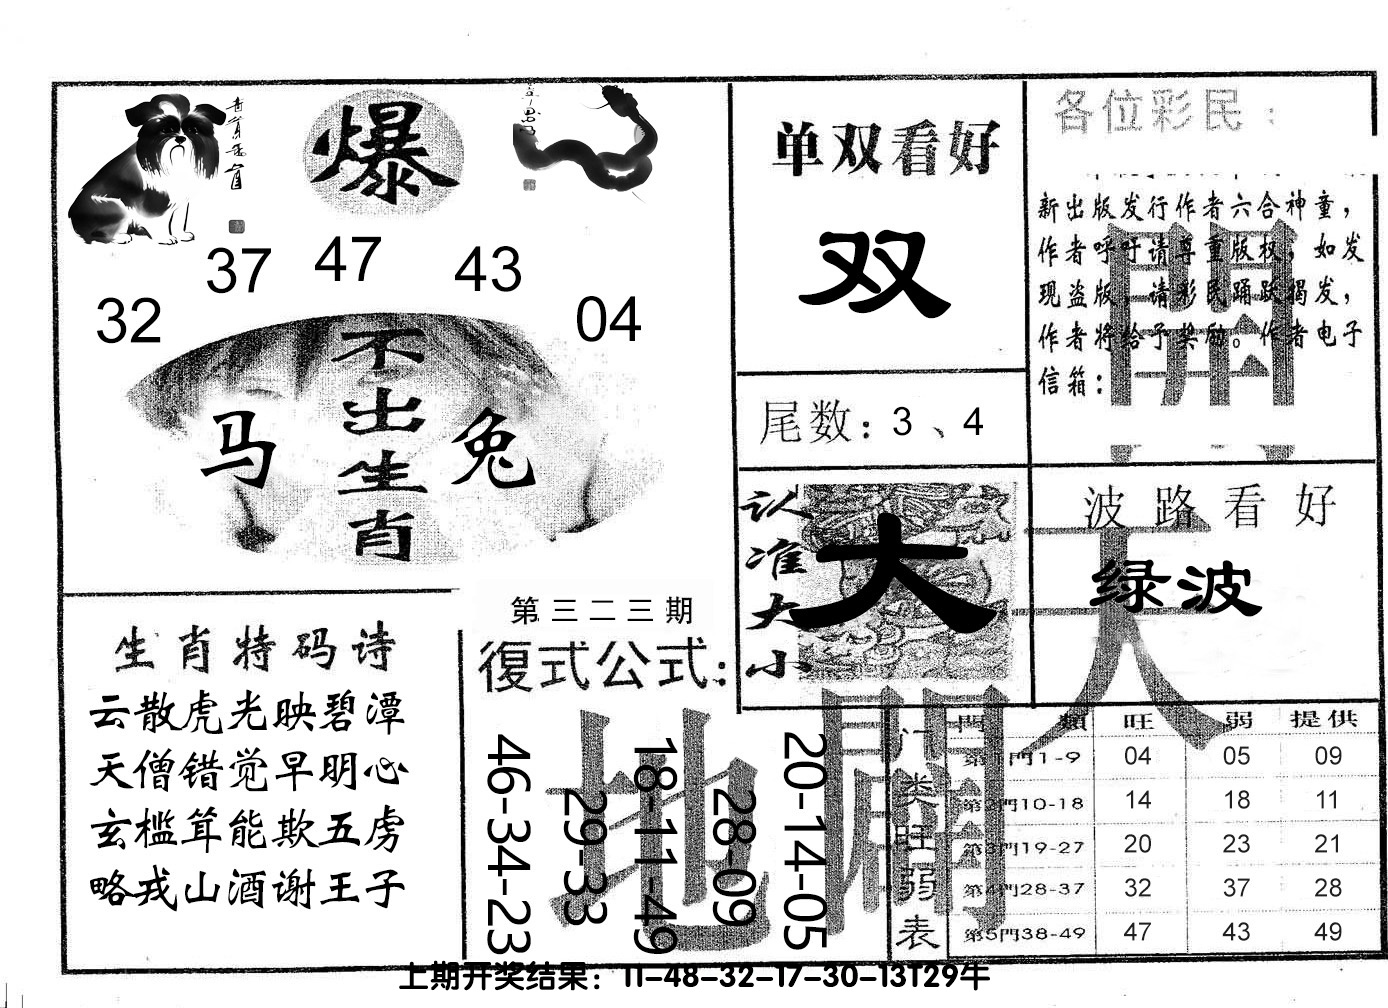 爆
37 47 43
32 04
不出生肖
马 兔
单双看好
双
尾数：3、4
各位彩民：
新出版发行作者六合神童，
作者呼吁请尊重版权，如发
现盗版，请彩民踊跃揭发，
作者将给予奖励。作者电子
信箱：
認准大小
大
波路看好
绿波
生肖特码诗
云散虎光映碧潭
天僧错觉早明心
玄槛茸能欺五虏
略戎山酒谢王子
第三二三期
復式公式：
46-34-23
29-33
18-11-49
28-09
20-14-05
天
地
開
門类旺弱表
門類 旺 弱 提供
第1門1-9 04 05 09
第2門10-18 14 18 11
第3門19-27 20 23 21
第4門28-37 32 37 28
第5門38-49 47 43 49
上期开奖结果：11-48-32-17-30-13T29牛